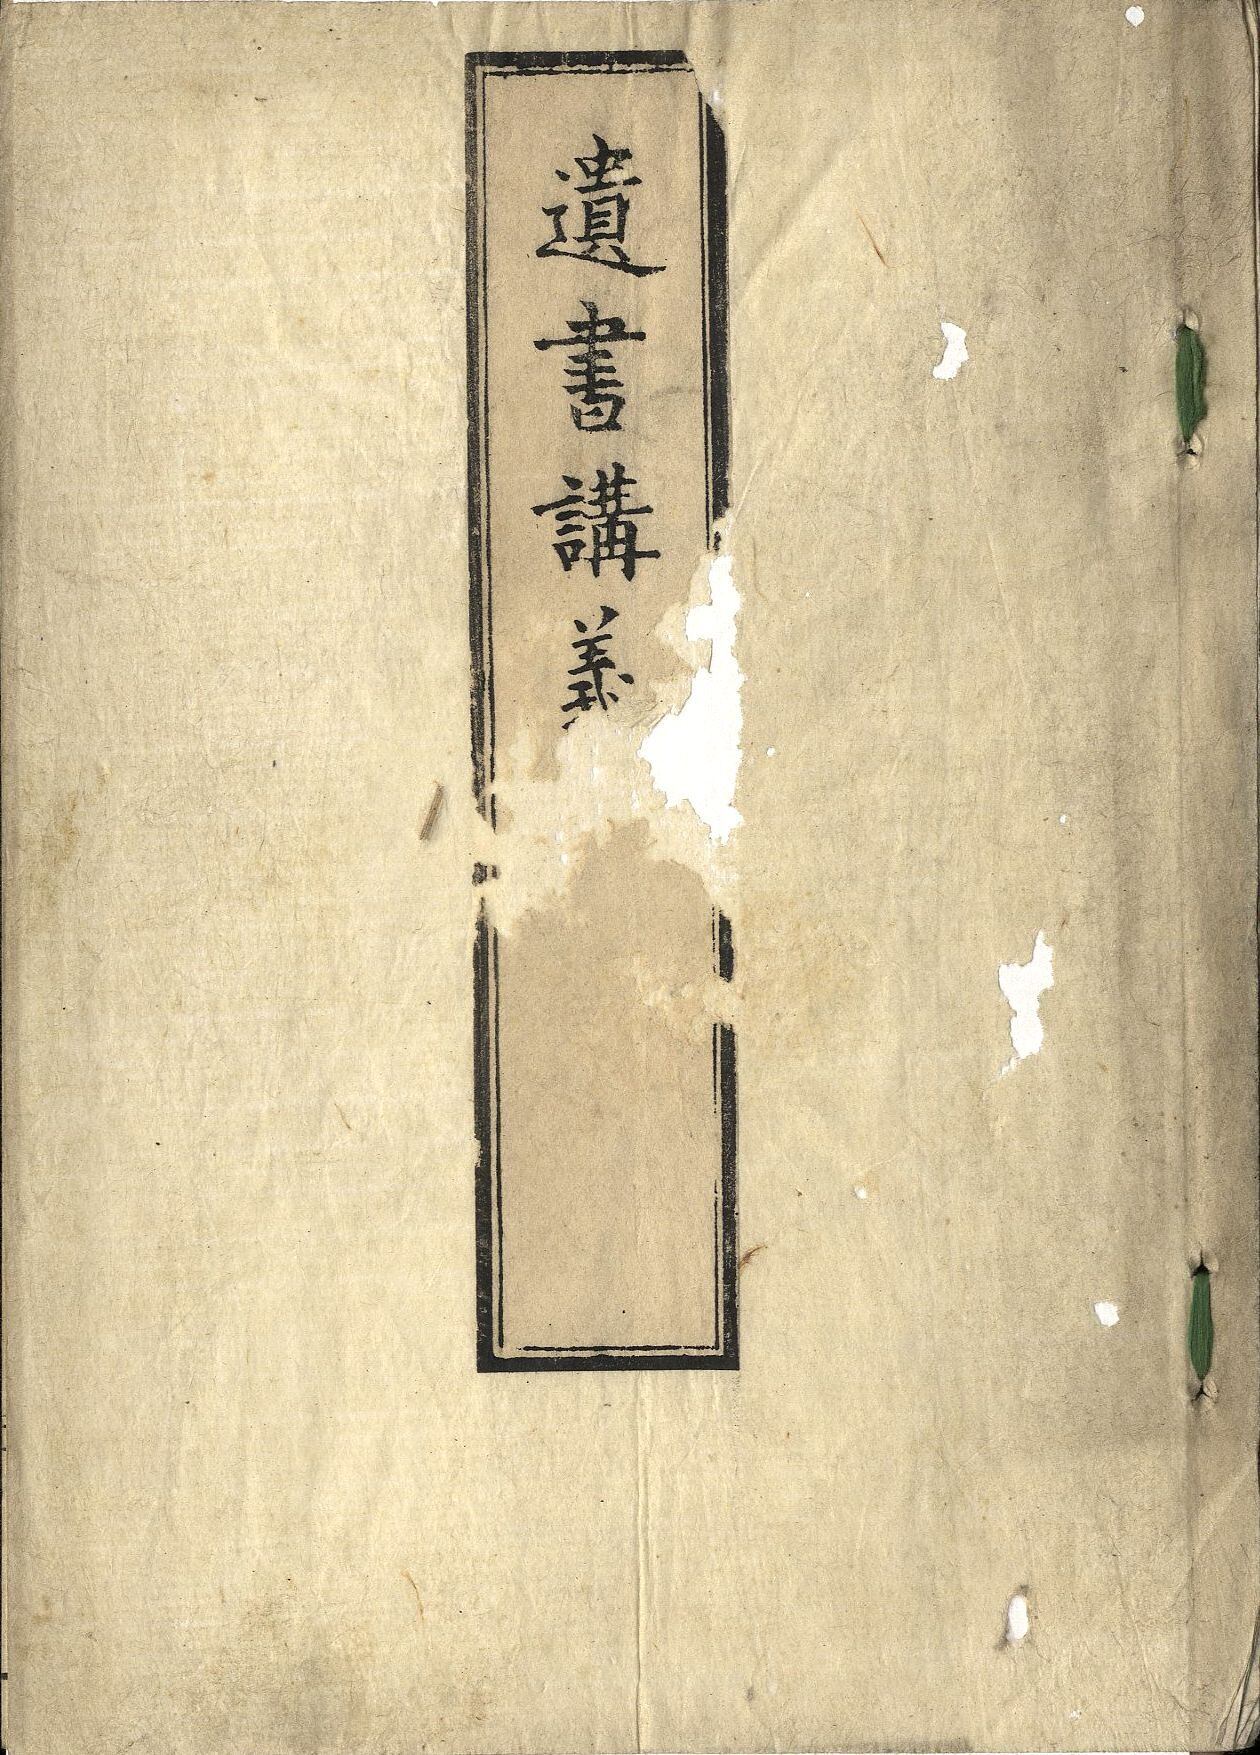 遺書講義